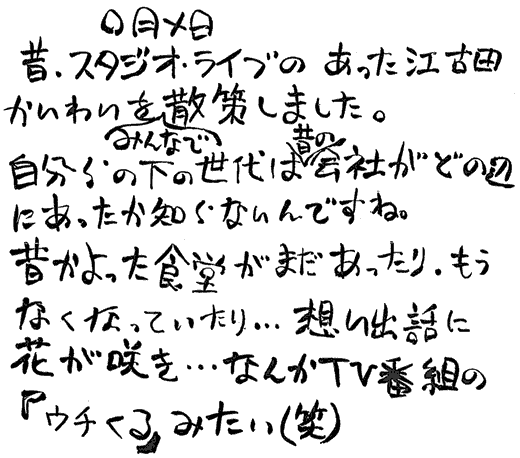 〇月×日
昔、スタジオ・ライブの あった江古田
かいわいを散策しました。
みんなで 昔の
自分らの下の世代は会社がどの辺
にあったか知らないんですね。
昔かよった食堂がまだあったり、もう
なくなっていたり… 想い出話に
花が咲き…なんかTV番組の
『ウチくる』みたい(笑)